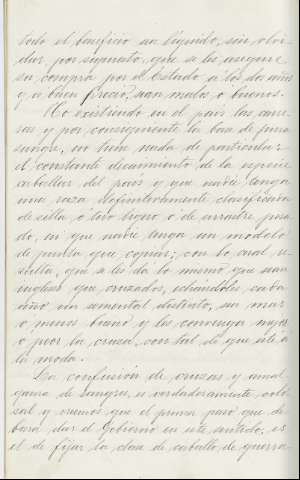 todo el beneficio sea líquido, sin olvi-
dar, por supuesto, que se les asegure
su compra por el Estado a los dos años
y a buen precio, sean malos o buenos.
No existiendo en el país las cau-
sas y por consiguiente la base de pura
sangre, no tiene nada de particular
el constante decaimiento de la especie
caballar del país y que nadie tenga
una raza definitivamente clasificada
de silla o tiro ligero o de arrastre pesa-
do, ni que nadie tenga un modelo
de prueba que copiar; con lo cual re-
sulta, que a les da lo mismo que sean
ingleses que cruzados, echándoles cada
año un semental distinto, sea más
o menos bueno y les convenga mejor
o peor la cruza, con tal de que esté a
la moda.
La confusión de cruzas y amal-
gama de sangres, es verdaderamente colo-
sal y creemos que el primer paso que de-
bería dar el Gobierno en este sentido, es
el de fijar la clase de caballo de guerra